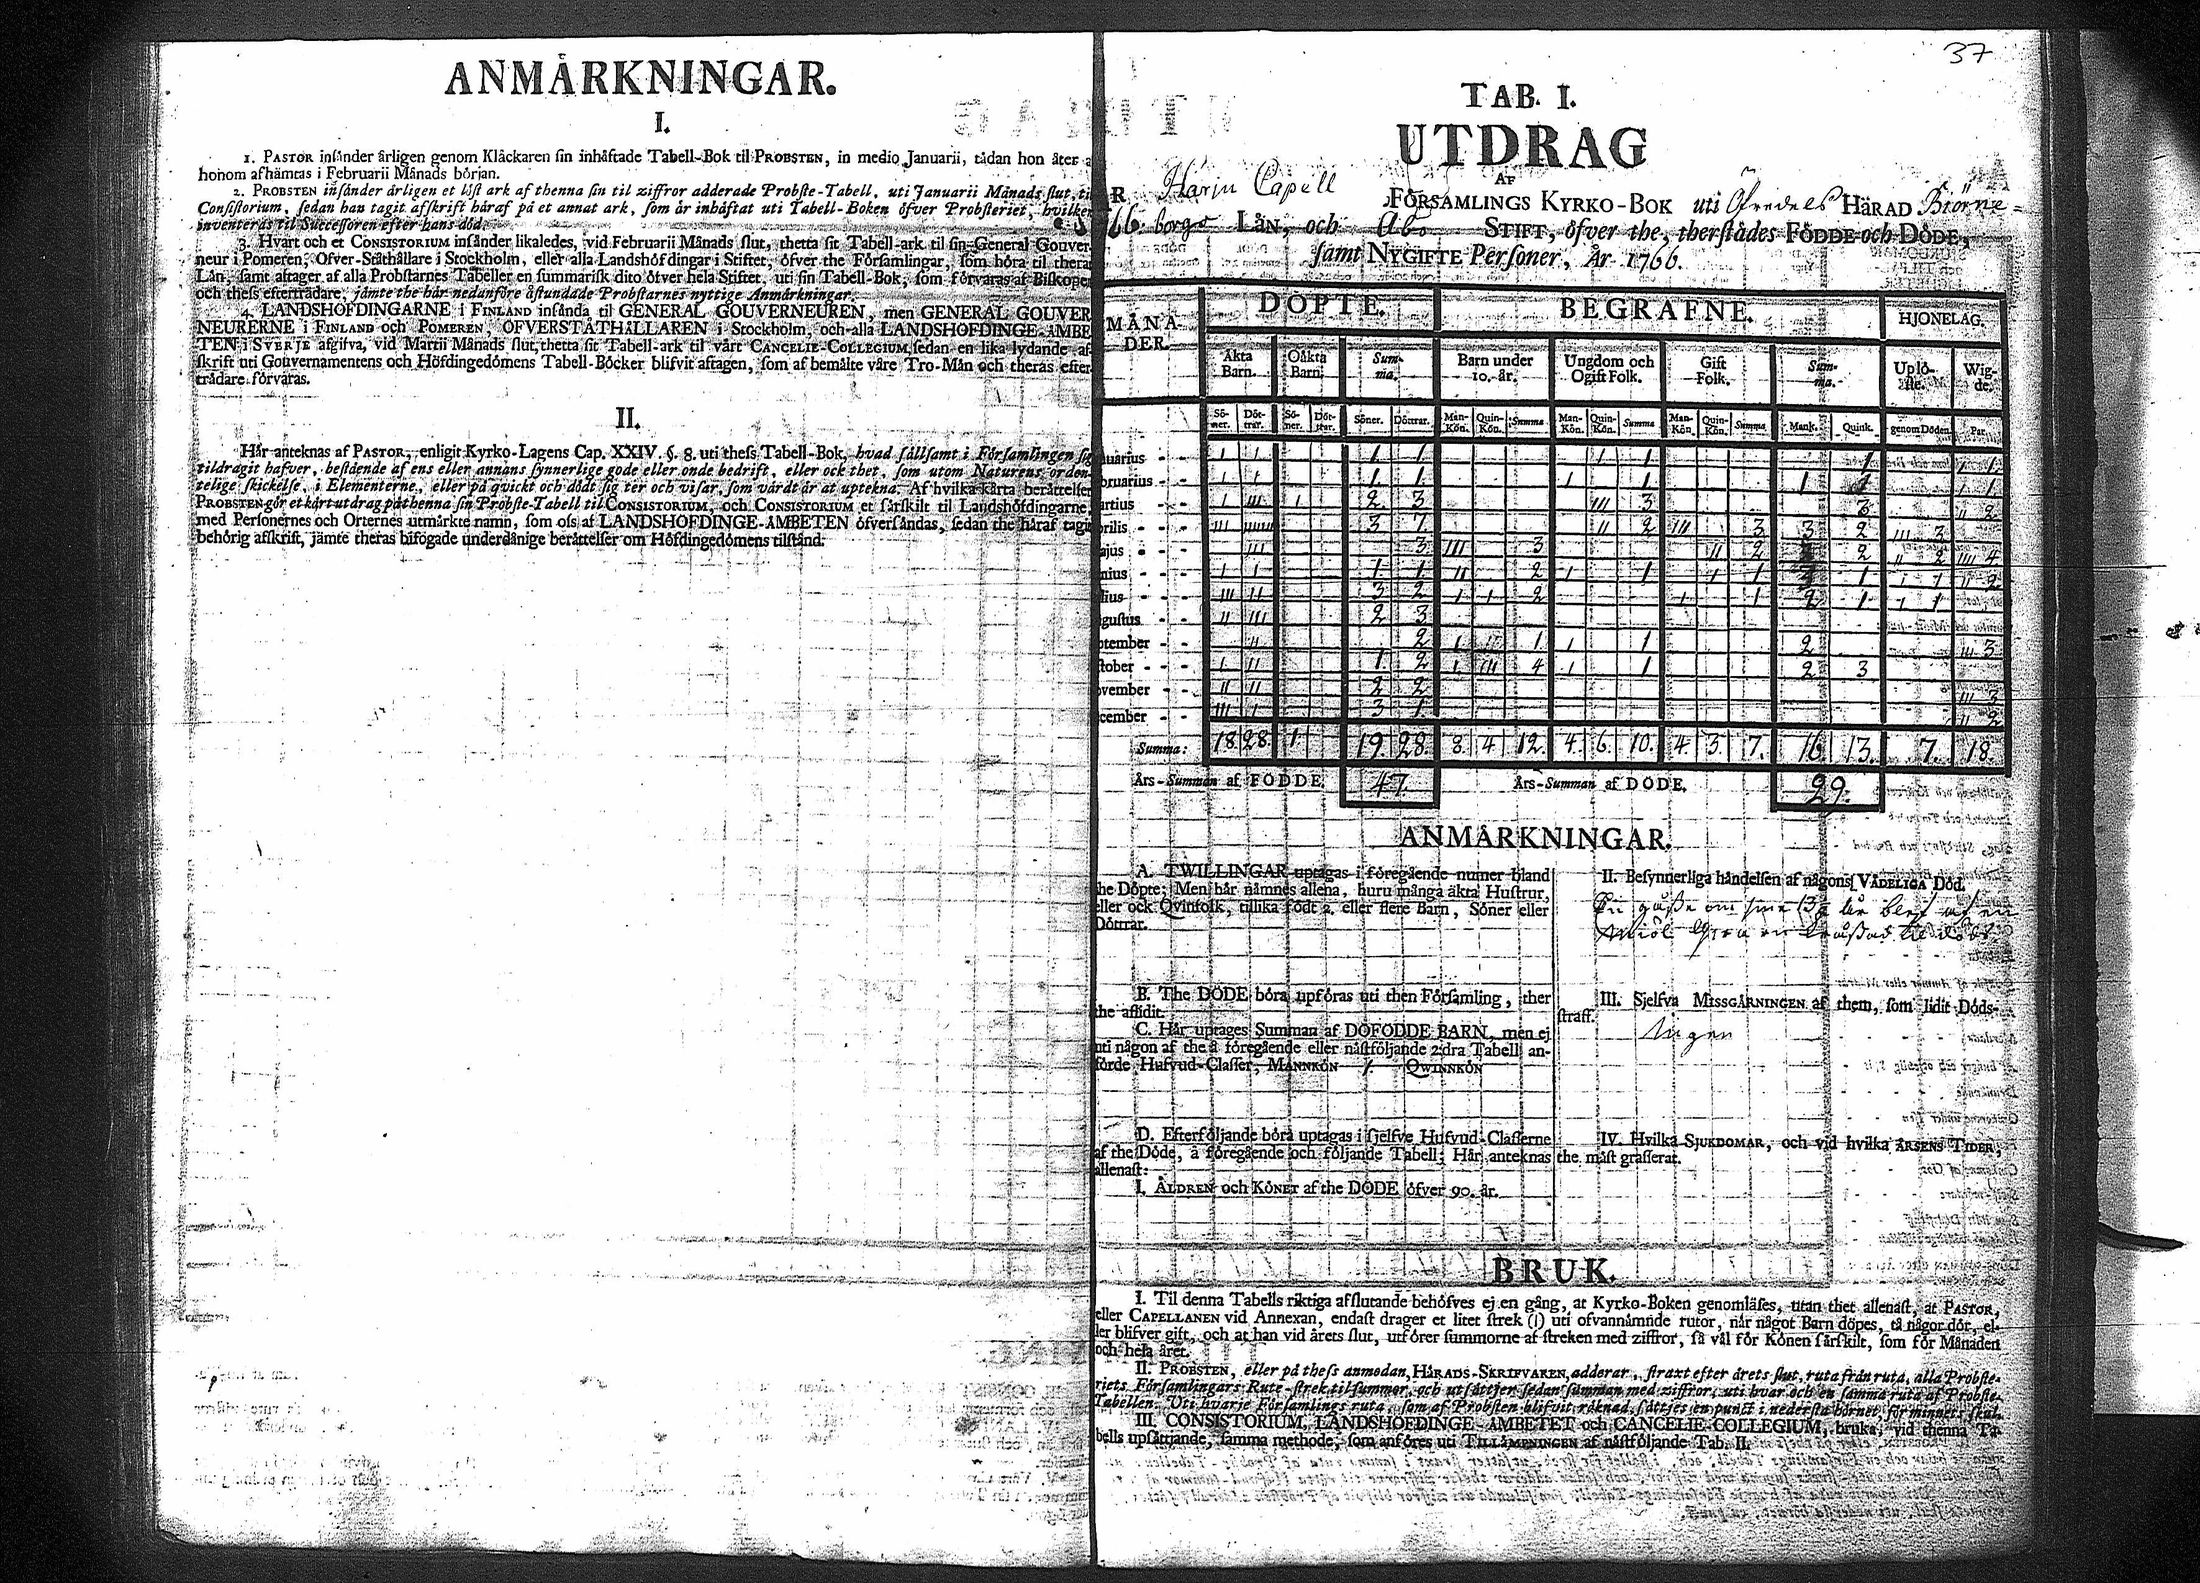 ANMÄRKNINGAR.
I.
1. PASTOR insänder årligen genom Klåckaren sin inhäftade Tabell-Bok til PROBSTEN, in medio Januarii, tådan hon åter
honom afhämtas i Februarii Månads början.
2. PROBSTEN insänder årligen et löst ark af thenna sin til ziffror adderade Probste-Tabell, uti Januarii Månads slut, til
Consistorium, sedan han tagit afskrift häraf på et annat ark, som är inhäftat uti Tabell-Boken öfver Probsteriet, hvilken
inventeras til Successoren efter hans död.
3. Hvart och et CONSISTORIUM insänder likaledes, vid Februarii Månads slut, thetta sit Tabell-ark til sin General Gouver-
neur i Pomeren, Öfver-Ståthållare i Stockholm, eller alla Landshöfdingar i Stiftet, öfver the Församlingar, som höra til thera
Län, samt aftager af alla Probstarnes Tabeller en summarisk dito öfver hela Stiftet, uti sin Tabell-Bok, som förvaras af Biskopen
och thess efterträdare, jämte the här nedanföre åstundade Probstarnes nyttige Anmärkningar.
4. LANDSHÖFDINGARNE i FINLAND insända til GENERAL GOUVERNEUREN, men GENERAL GOUVER
NEURERNE i FINLAND och POMEREN, ÖFVERSTÅTHÅLLAREN i Stockholm, och alla LANDSHÖFDINGE-ÄMBE
TEN i SVERJE afgifva, vid Martii Månads slut, thetta sit Tabell-ark til vårt CANCELIE-COLLEGIUM, sedan en lika lydande af-
skrift uti Gouvernamentens och Höfdingedömens Tabell-Böcker blifvit aftagen, som af bemälte våre Tro-Män och theras efter
trädare förvaras.
II.
Här anteknas af PASTOR, enligit Kyrko-Lagens Cap. XXIV. §. 8. uti thess Tabell-Bok, hvad sällsamt i Församlingen sig
tildragit hafver, bestående af ens eller annans synnerlige gode eller onde bedrift, eller ock thet, som utom Naturens orden-
telige skickelse, i Elementerne, eller på qvickt och dödt sig ter och visar, som värdt är at uptekna. Af hvilka korta berättelser
PROBSTEN gör et kort utdrag på thenna sin Probste-Tabell til CONSISTORIUM, och CONSISTORIUM et särskilt til Landshöfdingarne,
med Personernes och Orternes utmärkte namn, som oss af LANDSHÖFDINGE-ÄMBETEN öfversändas, sedan the häraf tagit
behörig afskrift, jämte theras bifogade underdånige berättelser om Höfdingedömens tilstånd.
37
TAB. I.
UTDRAG
AF
R Harju Capell FÖRSAMLINGS KYRKO-BOK uti Öfredels HÄRAD Biörne=
66. borgs LÄN, och Åbo STIFT, öfver the, therstädes FÖDDE och DÖDE,
samt NYGIFTE Personer, År 1766.
MÅNA DER. DÖPTE. BEGRAFNE. HJONELAG.
Äkta Barn. Oäkta Barn. Summa. Barn under 10. år. Ungdom och Ogift Folk. Gift Folk. Summa. Uplöste. Wigde.
Söner. Döttrar. Söner. Döttrar. Söner. Döttrar. Man-Kön. Quin-Kön. Summa Man-Kön. Quin-Kön. Summa Man-Kön. Quin-Kön. Summa Mank. Quink. genom Döden. Par.
nuarius I I 1 1 I 1 1 I 1
bruarius I I 1 1 I 1 1 I 1
artius I III I 2 3 III 3 3 II 2
prilis III IIIIIII 3 7 II 2 III 3 3 2 III 3
ajus III 3 III 3 II 2 2 II 2 IIII 4
nius I I 1 1 II 2 I 1 I 1 3 1 I 1 II 2
lius III II 3 2 I I 2 I 1 2 1 I 1
gustus II III 2 3
ptember II 2 I 1 I 1 2 III 3
ktober I II 1 2 I III 4 I 1 2 3
ovember II II 2 2 III 3
cember III I 3 1 II 2
Summa: 18 28 1 19. 28. 8. 4 12. 4. 6. 10. 4. 3. 7. 16. 13. 7. 18.
Års-Summan af FÖDDE. 47. Års-Summan af DÖDE. 29.
ANMÄRKNINGAR.
A. TWILLINGAR uptagas i föregående numer bland
the Döpte; Men här nämnes allena, huru många äkta Hustrur,
eller ock Qvinfolk, tillika födt 2. eller flere Barn, Söner eller
Döttrar.
B. The DÖDE böra upföras uti then Församling, ther
the aflidit.
C. Här uptages Summan af DÖFÖDDE BARN, men ej
uti någon af the å föregående eller nästföljande 2:dra Tabell an-
förde Hufvud-Classer, MANNKÖN 1. QWINNKÖN
D. Efterföljande böra uptagas i sjelfve Hufvud-Classerne
af the Döde, å föregående och följande Tabell; Här anteknas
allenast:
I. ÅLDREN och KÖNET af the DÖDE öfver 90. år.
II. Besynnerliga händelsen af någons VÅDELIGA Död.
En gåsse om sine 13 1/2 år blef af en
III. Sjelfva MISSGÄRNINGEN af them, som lidit Döds-
straff.
Ingen
IV. Hvilka SJUKDOMAR, och vid hvilka ÅRSENS TIDER,
the mäst grasserat.
BRUK.
I. Til denna Tabells riktiga afslutande behöfves ej en gång, at Kyrko-Boken genomläses, utan thet allenast, at PASTOR,
eller CAPELLANEN vid Annexan, endast drager et litet strek (I) uti ofvannämnde rutor, när något Barn döpes, tå någor dör, el-
ler blifver gift, och at han vid årets slut, utförer summorne af streken med ziffror, så väl för Könen särskilt, som för Månaden
och hela året.
II. PROBSTEN, eller på thess anmodan, HÄRADS-SKRIFVAREN, adderar, straxt efter årets slut, ruta från ruta, alla Probste-
riets Församlingars Rute-strek til summor, och utsättjer sedan summan med ziffror, uti hvar och en samma ruta af Probste-
Tabellen. Uti hvarje Församlings ruta, som af Probsten blifvit räknad, sättjes en punct i nedersta hörnet, för minnets skul.
III. CONSISTORIUM, LANDSHÖFDINGE-ÄMBETET och CANCELIE-COLLEGIUM, bruka, vid thenna Ta-
bells upsättjande, samma methode, som anföres uti TILLÄMPNINGEN af nästföljande Tab. II.